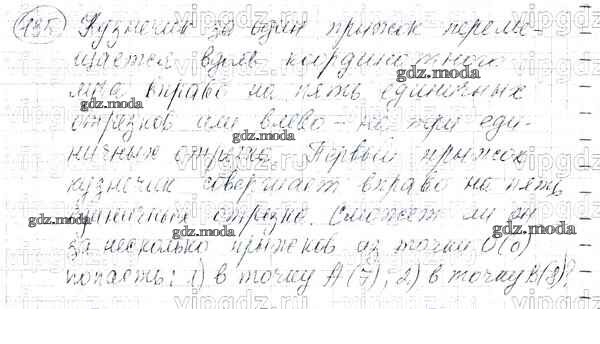 195 Кузнечик за один прыжок переме-
щается вдоль координатной
gdz.moda
вправо на пять единичных
gdz.moda
отрезков или влево - на три еди-
gdz.moda
ничных отрезка. Первый прыжок
кузнечик совершает вправо на пять
единичных отрезка. Сможет ли он
gdz.moda gdz.moda gdz.moda
за несколько прыжков из точки O(0)
попасть: 1) в точку A(7); 2) в точку B(8)?